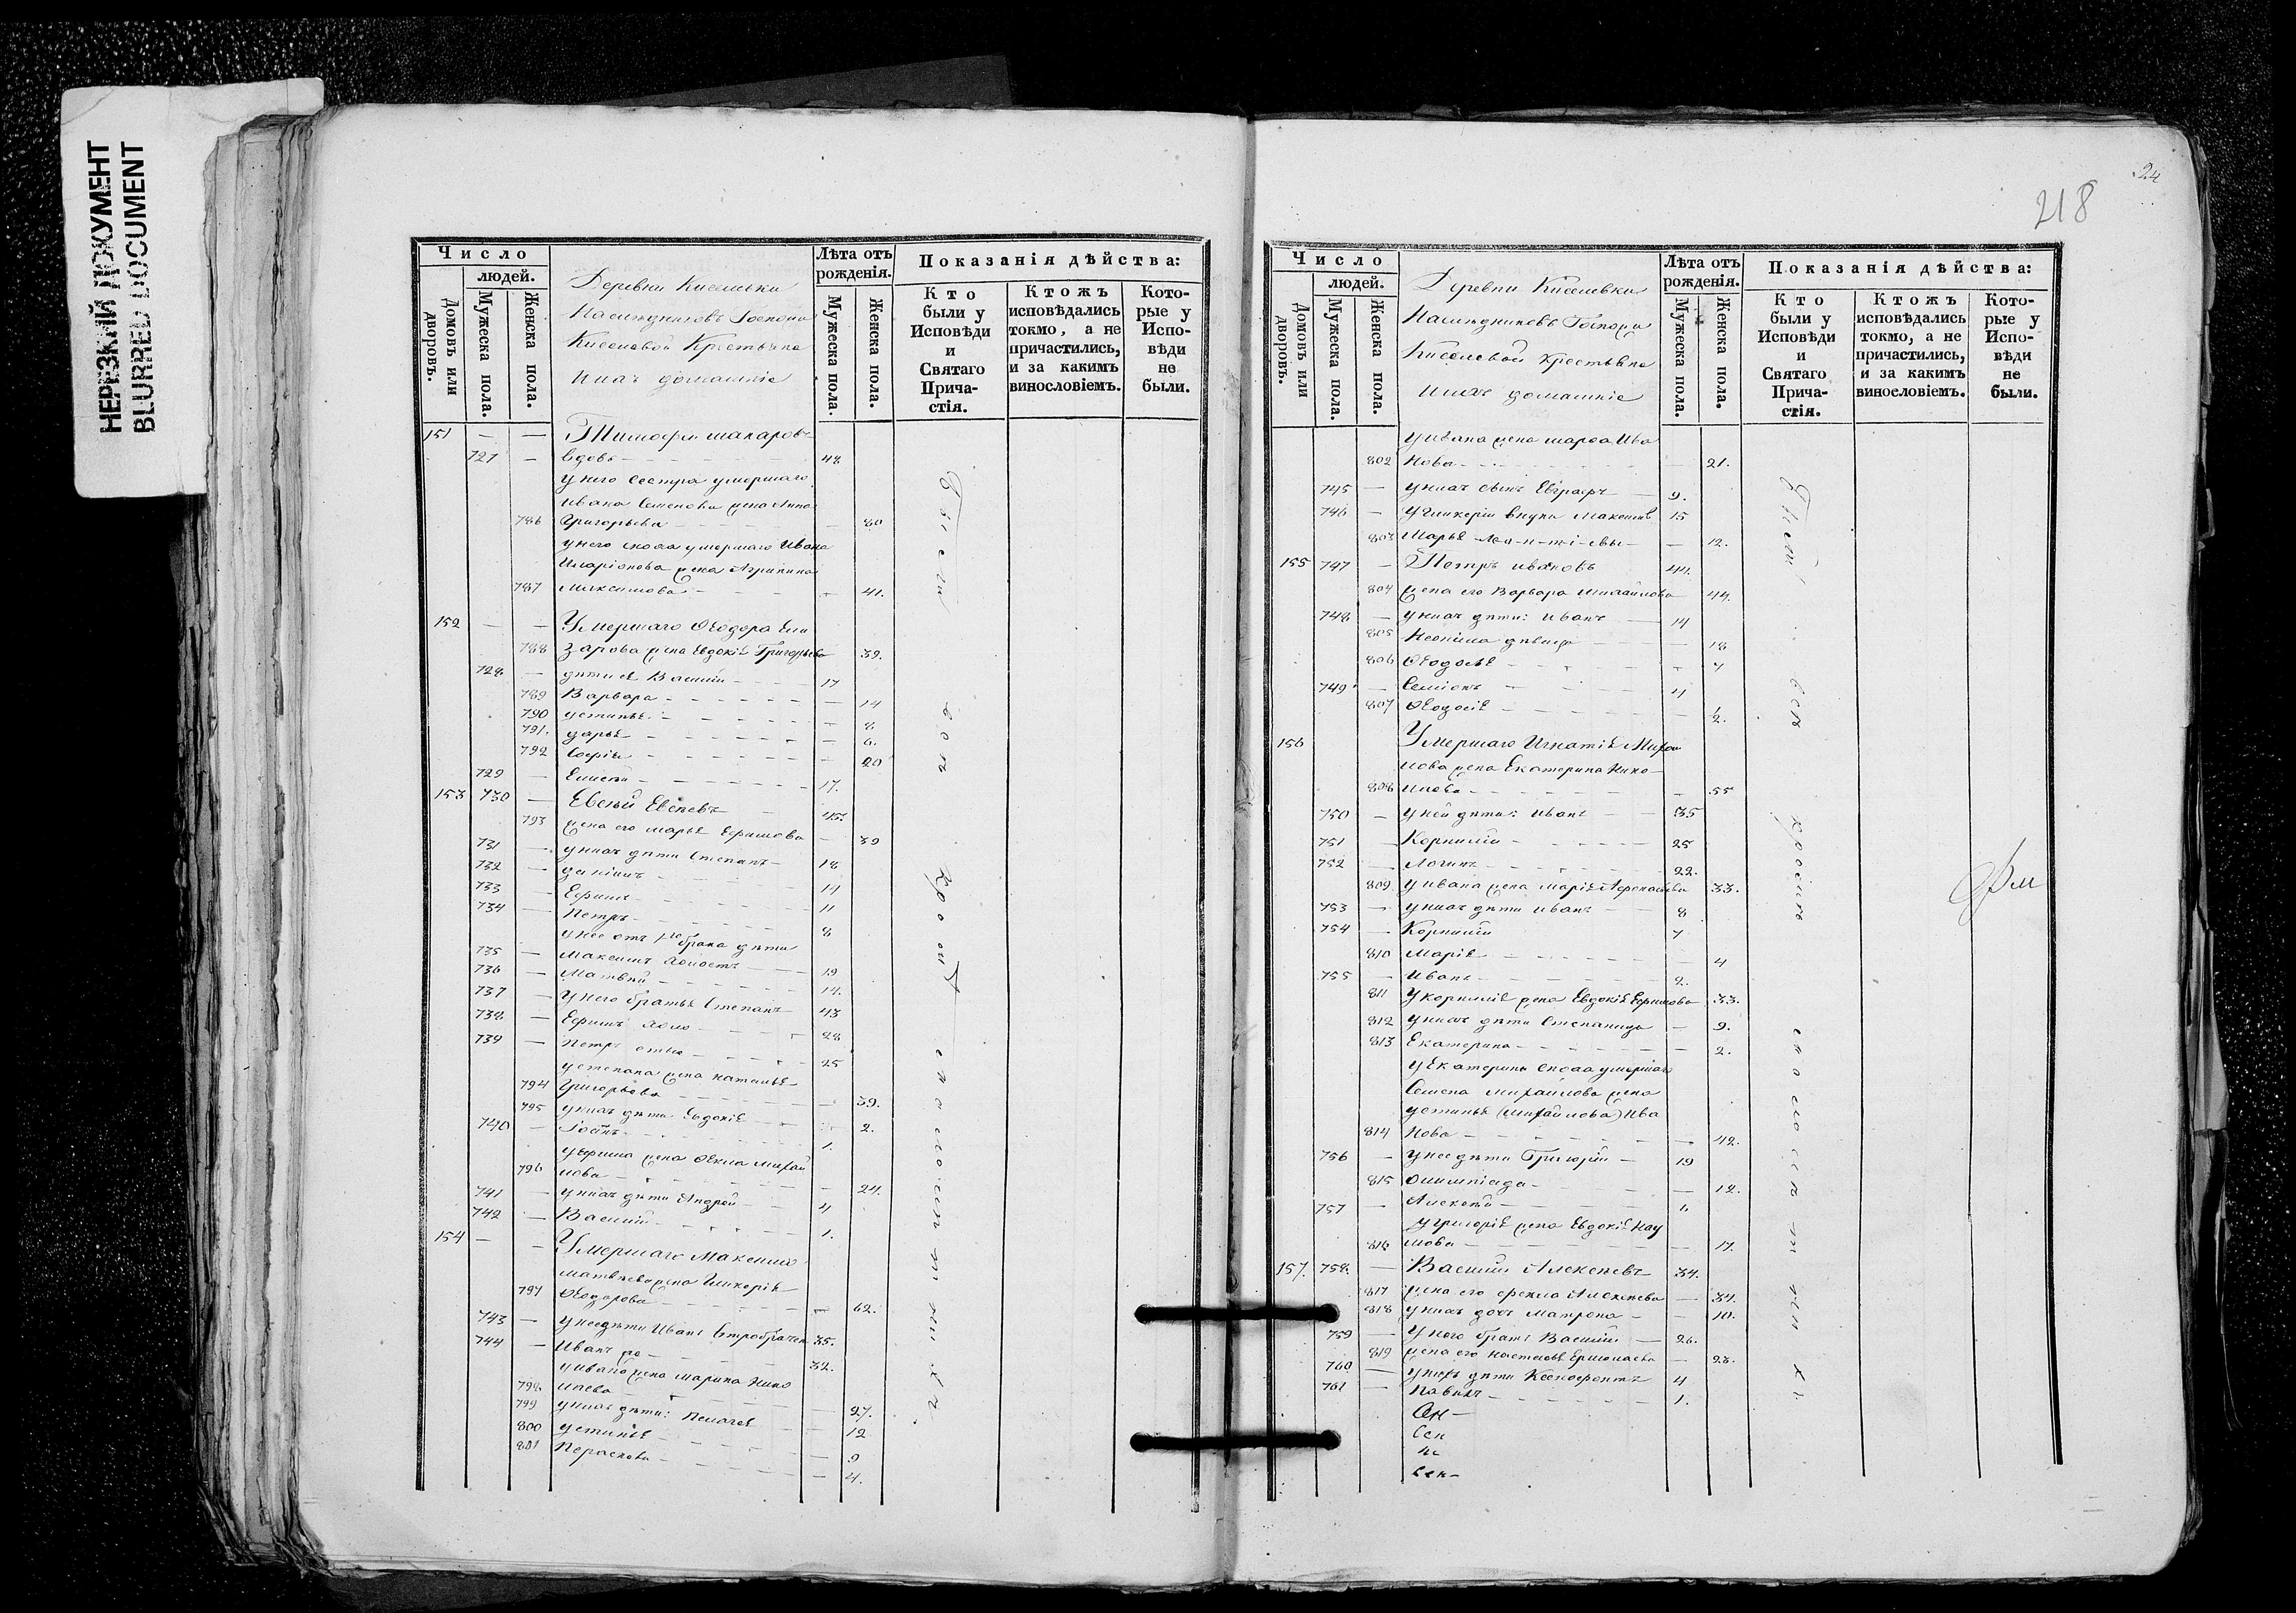 НЕРЕЗКИЙ ДОКУМЕНТ
BLURRED DOCUMENT
Число
людей.
Домовъ или дворовъ.
Мужеска пола.
Женска пола.
Деревни Киселевки
Наследниковъ Госпожи
Киселевой Крестьяне
и ихъ домашніе
Лѣта отъ рожденія.
Мужеска пола.
Женска пола.
Показанія дѣйства:
Кто были у Исповѣди и Святаго Причастія.
Ктожъ исповѣдались токмо, а не причастились, и за какимъ винословіемъ.
Которые у Исповѣди не были.
151 — — Тимофей Макаровъ
727 — вдовъ 48
у него сестра умершаго
Ивана Семенова жена Анна
786 Григорьева — 80
у него сноха умершаго Ивана
Иларіонова жена Агрипина
787 Максимова — 41.
152 — — Умершаго Ѳеодора Ели
788 зарова жена Евдокія Григорьева 39.
728 — дѣти ея Василій 17
789 Варвара — 14
790 Устинья — 8
791. Дарья — 6.
792 Софія — 20
729 — Елисей 17.
153 730 — Евсѣй Евсѣевъ 45.
793 жена его Марья Ефимова — 39
731 — у нихъ дѣти Степанъ 18
732 — Даніилъ 14
733 — Ефимъ 11
734 — Петръ 8
у нее отъ 1го брака дѣти
735 — Максимъ холостъ 19
736 — Матвѣй 14.
737 — у него братья Степанъ 43
738 — Ефимъ 28
739 — Петръ 25
у Степана жена Наталья
794 Григорьева — 39.
795 у нихъ дѣти Евдокія — 2.
740 — 1.
у Ефима жена Ѳекла Михай
796 лова — 24.
741 — у нихъ дѣти Андрей 4
742 — Василій 1.
154 — — Умершаго Максима
Матвѣева жена Гликерія
797 Ѳеодорова — 62.
743 — у нее дѣти Иванъ 35.
744 — Иванъ 32.
у Ивана жена Марина Нико
798 лаева — 27.
799 у нихъ дѣти: Пелагея — 12
800 Устинья — 9
801 Параскова — 4.
Были
всѣ
24
218
Число
людей.
Домовъ или дворовъ.
Мужеска пола.
Женска пола.
Деревни Киселевки
Наследниковъ Госпожи
Киселевой Крестьяне
и ихъ домашніе
Лѣта отъ рожденія.
Мужеска пола.
Женска пола.
Показанія дѣйства:
Кто были у Исповѣди и Святаго Причастія.
Ктожъ исповѣдались токмо, а не причастились, и за какимъ винословіемъ.
Которые у Исповѣди не были.
у Ивана жена Марѳа Ива
802 нова — 21.
745 — у нихъ сынъ Евграфъ 9.
746 — у Гликеріи внуки Максимъ 15
803 Марья — 12.
155 747 — Петръ Ивановъ 44.
804 жена его Варвара Михайлова 44.
748 — у нихъ дѣти: Иванъ 14
805 Неонила дѣвица — 18
806 Ѳеодосья — 7
749 — Семіонъ 4
807 Ѳеодосія — 1/2.
156 Умершаго Игнатія Михай
лова жена Екатерина Нико
808 лаева — 55
750 — у ней дѣти: Иванъ 35
751 — Корнилій 25
752 — Логинъ 22.
809 у Ивана жена Марія Афонасьева 33.
753 — у нихъ дѣти Иванъ 8
754 — Корнилій 7
810 Марія — 4
755 — Иванъ 2.
811 у Корнилія жена Евдокія Ефимова 33.
812 у нихъ дѣти Степанида — 9.
813 Екатерина — 2.
у Екатерины сноха умершаго
Семена Михайлова жена
Устинья (Михайлова) Ива
814 нова — 42.
756 — у нее дѣти Григорій 19
815 Олимпіада — 12.
757 — Алексѣй
у Григорія жена Евдокія Нау
816 мова — 17.
157. 758. — Василій Алексѣевъ 34.
817 жена его Ѳекла Алексѣева — 34.
818 у нихъ дочь Матрона — 10.
759 — у него братъ Василій 26.
819 жена его Настасья Ермолаева — 23.
760 — у нихъ дѣти Ксенофонтъ 4
761 — Павелъ 1.
всѣ